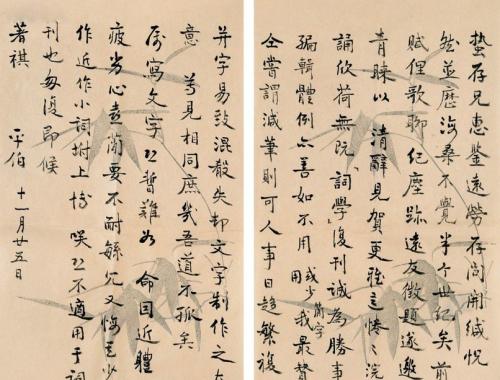 蛰存兄惠鑒遠勞存問開緘怳
然並歷滄桑不覺半个世纪矣前
賦俚歌聊纪塵跡遠友徵題遂邀
青睞以清辭見賀更雅之惓惓浣
誦欣荷無阮「詞學」復刊誠為勝事
編輯體例亦善如不用或少用簡字我最贊
仝嘗謂減筆則可人事日趋繁複
并字易致混殽失却文字制作之本
意 尊見相同庶幾吾道不孤矣
属寫文字 暫難如 命因近體
疲劣心 闌 不耐 冗又悔其少
作近作小詞附上博 咲恐不適用于詞
刊也匆復即候
著祺
平伯 十一月廿五日